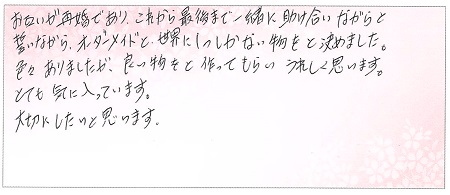 お互いが再婚であり、これから最後まで一緒に助け合いながらと
誓いながら、オーダーメイドと、世界に1つしかない物をと決めました。
色々ありましたが、良い物をと作ってもらいうれしく思います。
とても気に入っています。
大切にしたいと思います。